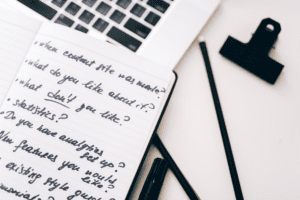 • when content file was made?
• what do you like about it?
• what don't you like?
• statistics?
• Do you have analytics
set up?
features you would
like?
existing style